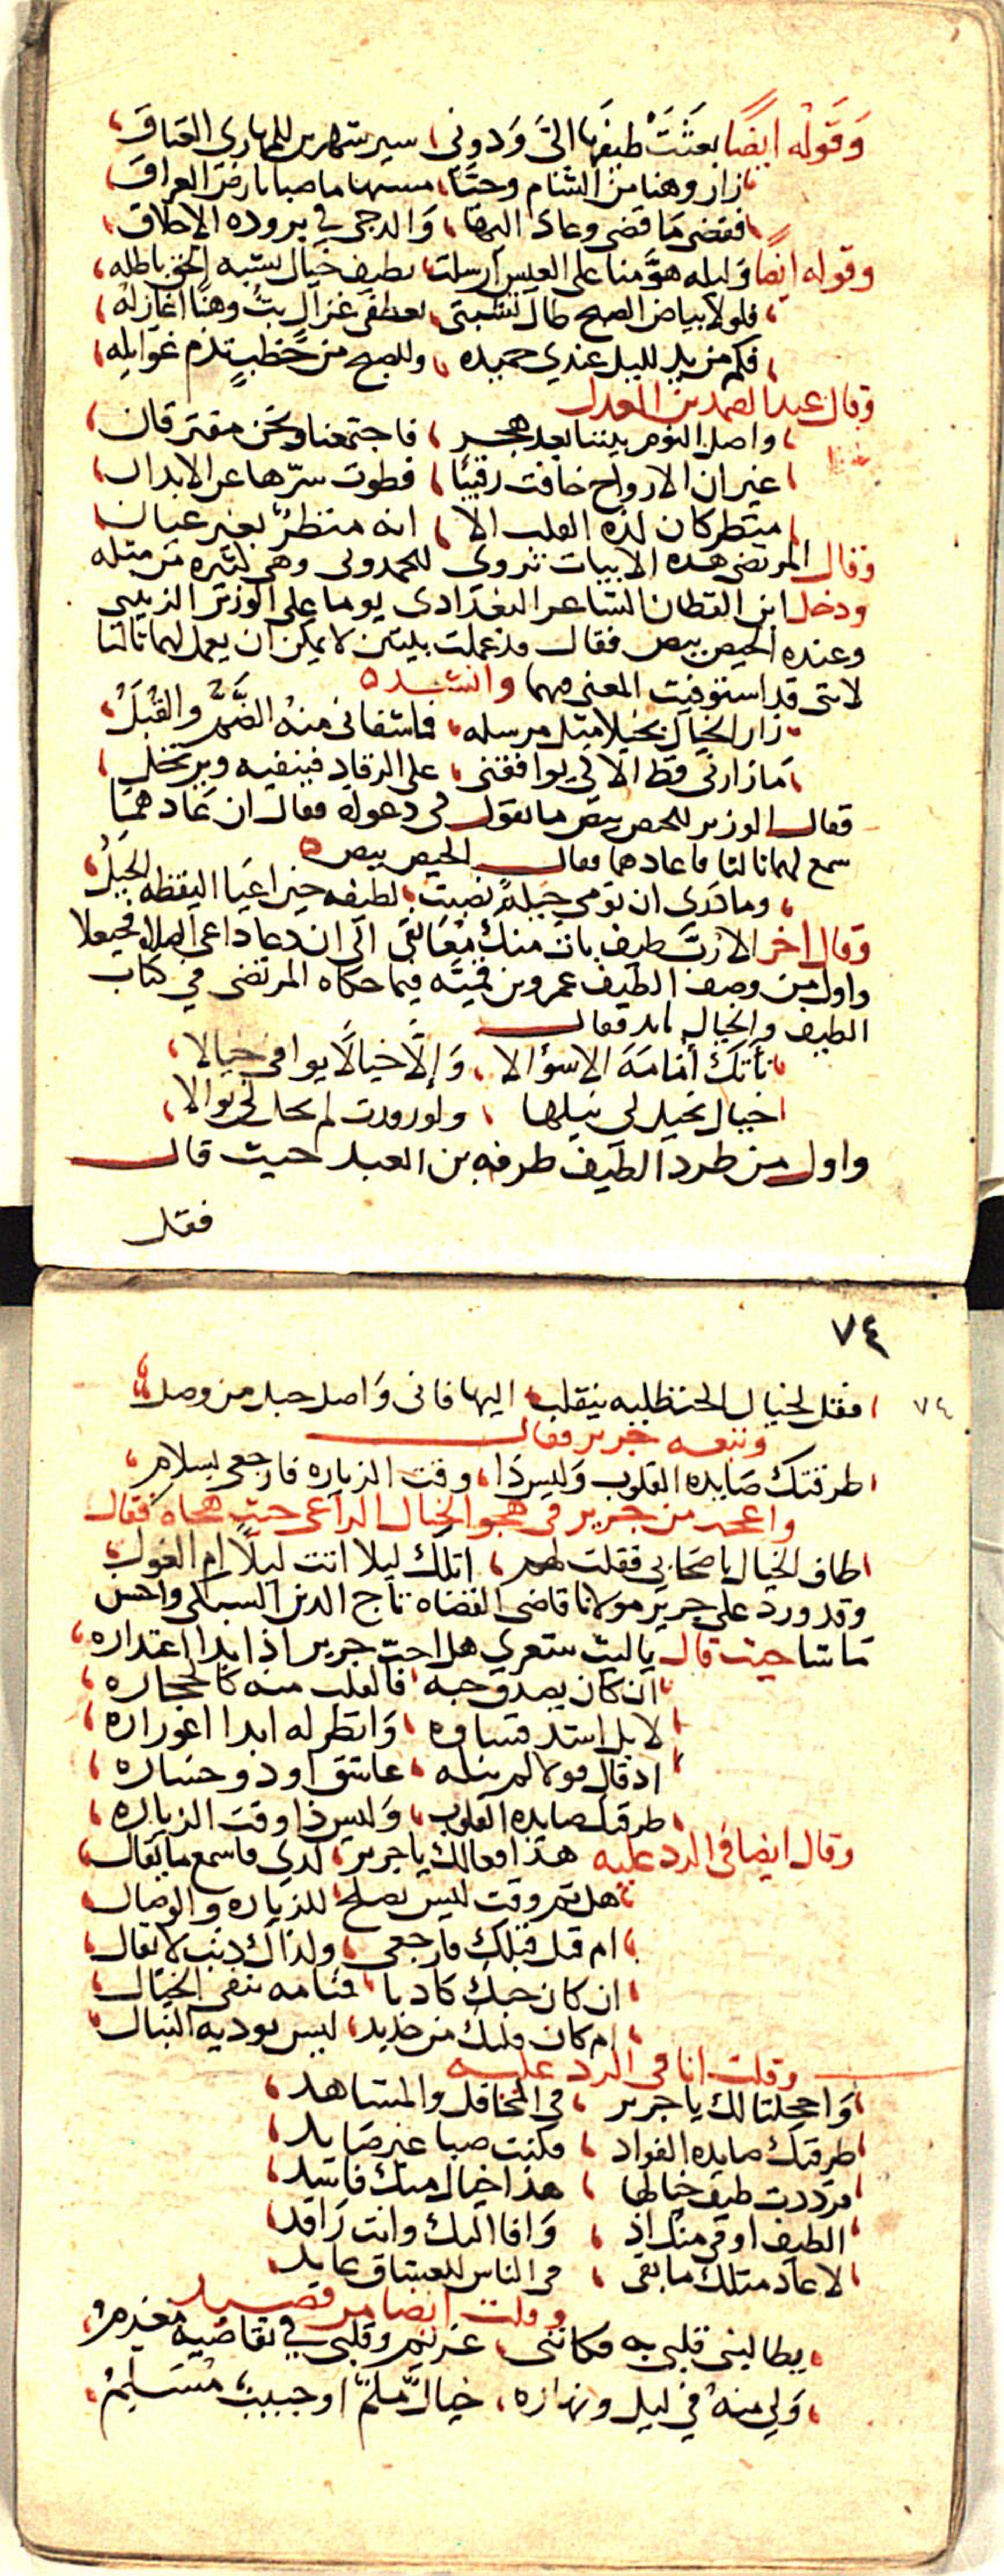 وَقَوْله ايضًا بعَثَتْ طيفها الىَّ وَدونى سير شهرين للمهارى العتاقَ
زار وهنا من الشام وحيا مستهاما صبا بارض العراق
فقضى ما قضى وعاد اليها وَالدجى فى بروده الاخلاق
وقوله ايضا وليله هوّمنا على العيس ارسلت بطيف خيال يشبه الحق باطله
فلولا بياض الصبح طال تشبثى بعطفى غزال بتُّ وهنا اغازله
فكم من يد لليل عندي حميده وللصبح من خطبٍ تذم غوايله
وقال عبد الصمد بن المعدل
واصل النوم بيننا بعد هجر فاجتمعنا ونحن مفترقان
غير ان الارواح خافت رقيبًا فطوت سرّها عن الابدان
منظر كان لذة القلب الا انه منظرٌ بغير عيان
وقال المرتضى هذه الابيات تروى للحمدونى وهى كثيره من مثله
ودخل ابن القطان الشاعر البغدادى يوما على الوزير الزينبى
وعنده الحيص بيص فقال قد عملت بيتين لا يمكن ان يعمل لهما ثالثا
لانى قد استوفيت المعنى فيهما وانشده
زار الخيال بخيلا مثل مرسله فما شفانى منه الضَّمُّ والقُبَلُ
مَا زارنى قط الا كى يوافقنى على الرقاد فينفيه ويرتحل
فقال الوزير للحيص بيص ما تقول فى دعواه فقال ان عادهما
سمع لهما ثالثا فاعادهما فقال الحيص بيص
وما درى ان نومى حيلةٌ نصبت لطيفه حين اعيا اليقظه الحِيَلُ
وقال اخر الا ربّ طيف بات منك معانقى الى ان دعا داعى الصلاة فحيعلا
واول من وصف الطيف عمرو بن قميئه فيما حكاه المرتضى فى كتاب
الطيف والخيال له فقال
نأتك أمامَة الا سؤالا وَإلّا خيالًا يوافى خيالا
خيال يخيل لى نيلها ولو قدرت لم يخل لى نوالا
واول من طرد الطيف طرفه بن العبد حيث قال
فقل
٧٤
٧٤
فقل لخيال الحنظليه ينقلب اليها فانى وَاصل حبل من وصل
وتبعه جرير فقال
طرقتك صَايده القلوب وَليس ذَا وقت الزياره فارجعى بسلام
واعجب من جرير فى هجو الخيال الراعى حيث هجاه فقال
طاف الخيال باصحابى فقلت لهم اتلك ليلا اتت ليلًا ام الغول
وقد ورد على جرير مولانا قاضى القضاه تاج الدين السبكى واحسن
مَا شا حيث قال يا ليت شعرى هل احبّ جرير اذ ابدا اعتذاره
ان كان يصدق حبه فالقلب منه كالحجاره
لا بل اشد قساوه وَانظر له ابدا اغوراره
اذ قال قولا لم يقله عاشق او ذو خساره
طرقتك صايده القلوب وَليس ذا وقت الزياره
وقال ايضا فى الرد عليه هذا مقالك يا جرير لدى فاسمع ما يقال
هل ثم وقت ليس يصلح للزياره والوصال
ام قبل قبلك فارجعى ولذاك ذنب لا يقال
ان كان حبك كاذبا فمنامه ينفى الخيال
ام كان قلبك من حديد ليس توذيه النبال
وقلت انا فى الرد عليه
وَا خجلتا لك يا جرير فى المحافل والمشاهد
طرقتك صايده الفواد فكنت صبا غير صايد
فرددت طيف خيالها هذا خيال منك فاسد
الطيف اوفى منك اذ وَافا اليك وانت رَاقد
لا عاد مثلك ما بقى فى الناس للعشاق عايد
وقلت ايضا من قصيد
يطالبنى قلبى به فكاننى غريم وقلبى فى تقاضيه مغرم
وَلى منهُ فى ليل ونهاره خيالٌ ملمٌّ او حبيبٌ مُسَلِّمُ